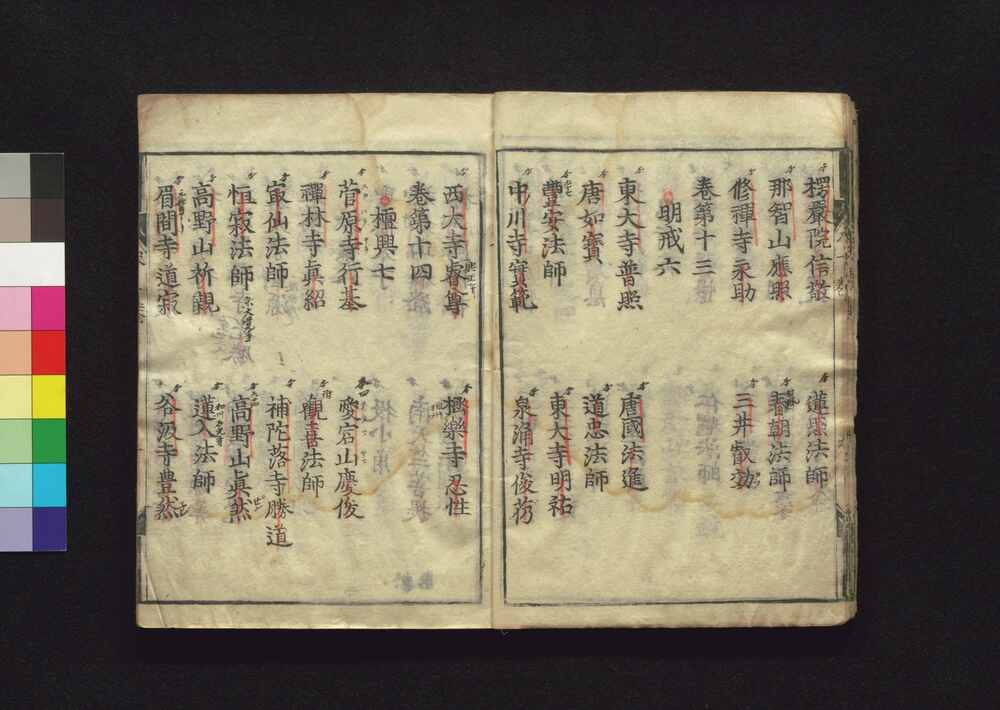 楞嚴院信敬　蓮照法師
那智山應照　春朝法師
修禪寺永助　三井叡効
卷第十三
明戒六
東大寺普照　唐國法進
唐如寶　道忠法師
豐安法師　東大寺明祐
中川寺實範　泉涌寺俊芿
西大寺睿尊　極樂寺忍性
卷第十四
檀興七
菅原寺行基　愛宕山慶俊
禪林寺眞紹　觀喜法師
㝡仙法師　補陀落寺勝道
恒寂法師　高野山眞然
高野山祈親　蓮入法師
眉間寺道寂　谷汲寺豊然